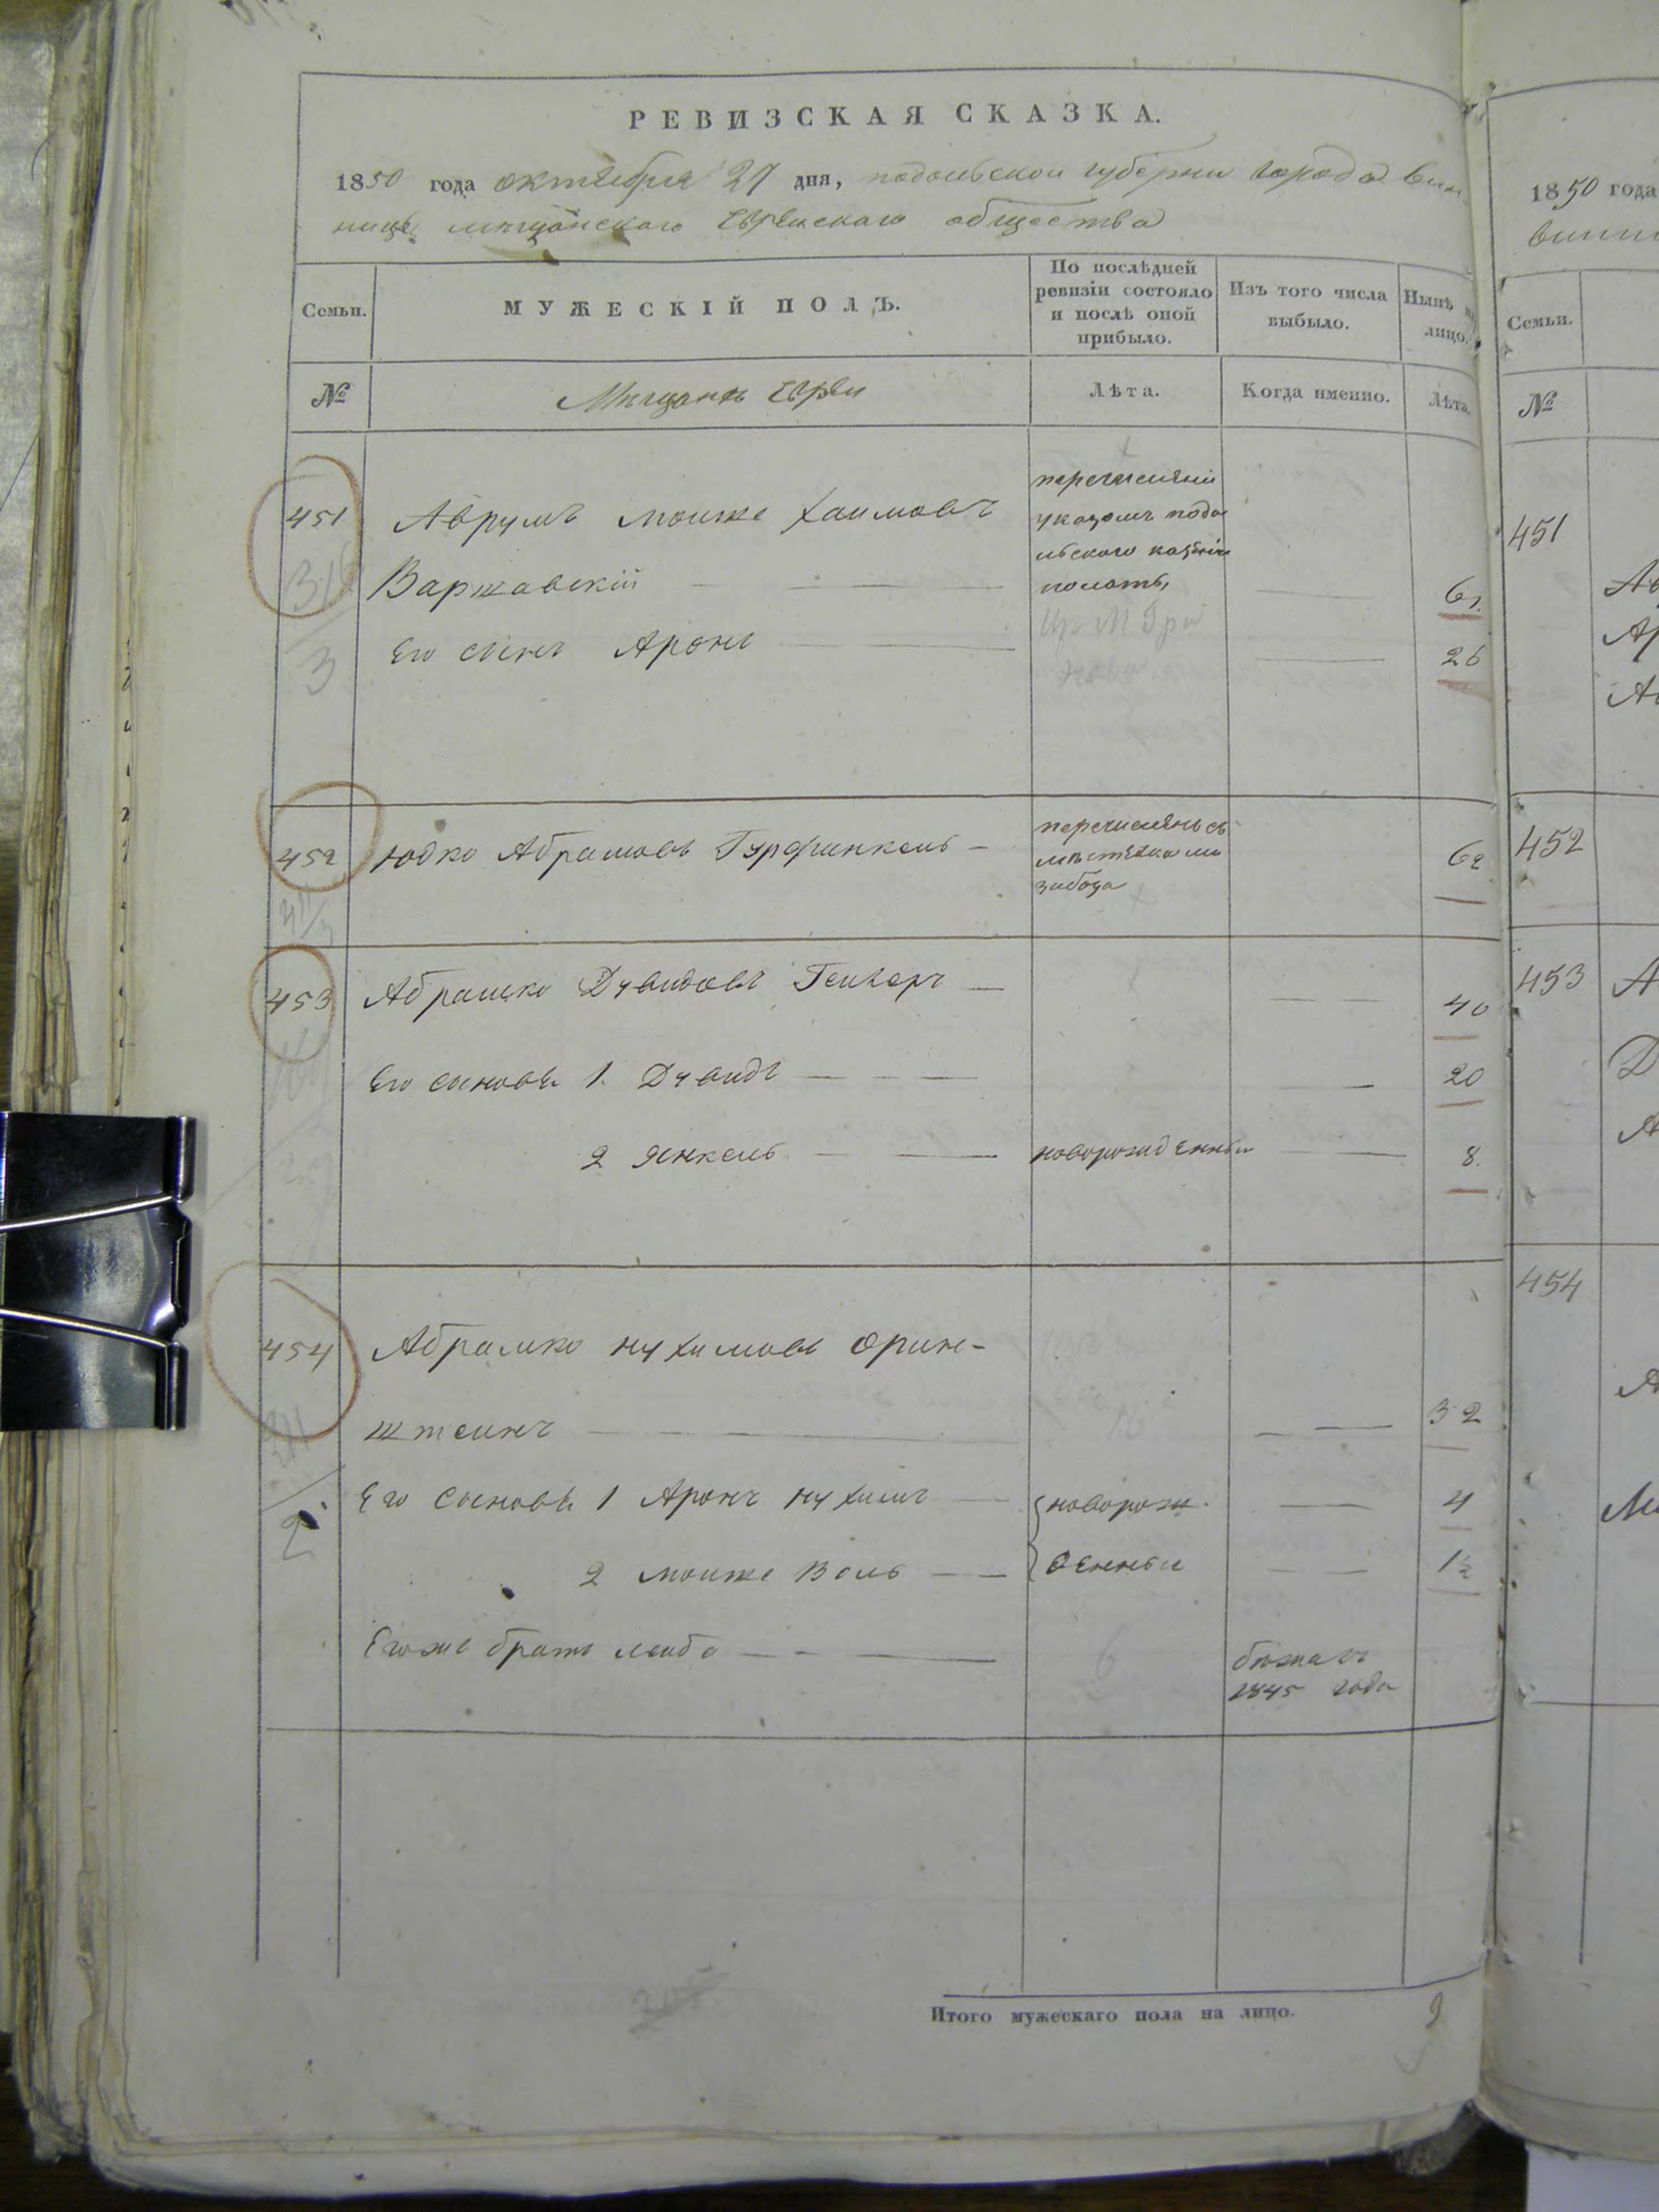 РЕВИЗСКАЯ СКАЗКА.
1850 года октября 27 дня, подольской губернии города Вин
ницы мещанского Еврейского общества
Семьи.
МУЖЕСКІЙ ПОЛЪ.
По послѣдней
ревизіи состояло
и послѣ оной
прибыло.
Изъ того числа
выбыло.
Нынѣ на
лицо.
№
Мещане Евреи
Лѣта.
Когда именно.
Лѣта.
451 Аврумъ Мошке Хаимовъ
Варшавскій
перечислені
указомъ подо
льского казеной
полаты
61
Его сынъ Аронъ 26
3
452 Юдко Абрамовъ Гурфинкель
перечисленъ съ
местечка
62
453 Абрашко Дувидовъ Гейлеръ 40
Его сыновя 1. Дувидъ 20
2 Янкель новорожденныи 8.
454 Абрамко Нухимовъ Орин-
штеинъ 16 32
Его сыновя 1 Аронъ Нухимъ новорож. 4
2 Мошке Воль денныи 1½
Егоже братъ Лейба 6 бежалъ
1845 года
Итого мужескаго пола на лицо. 9
1850 года
винн
Семьи.
№
451
Ав
Ар
452
453 А
Д
А
454
А